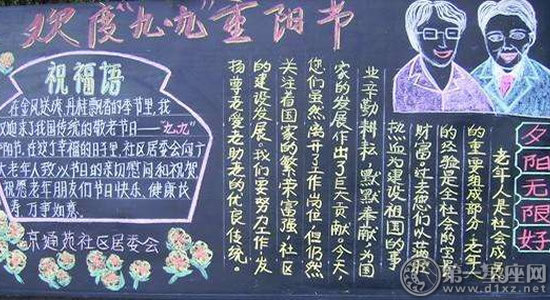 欢度“九·九”重阳节
祝福语
在金风送爽，丹桂飘香的季节里，我
们迎来了我国传统的敬老节日——“九九”
重阳节，在这个幸福的日子里，社区居委会向广
大老年人致以节日的亲切慰问和祝贺
祝愿老年朋友们节日快乐、健康长
寿、万事如意。
京通苑社区居委会
夕阳无限好
老年人是社会成员
的重要组成部分，老年人
的经验是全社会的宝贵
财富，过去他们以满腔
热血为建设祖国的事
业辛勤耕耘，默默奉献，为国
家的发展作出了巨大贡献。今天，
您们虽然离开了工作岗位，但仍然
关注着国家的繁荣富强、社区
的建设发展。我们要努力工作，发
扬尊老爱老助老的优良传统。
第一星座网
www.d1xz.net